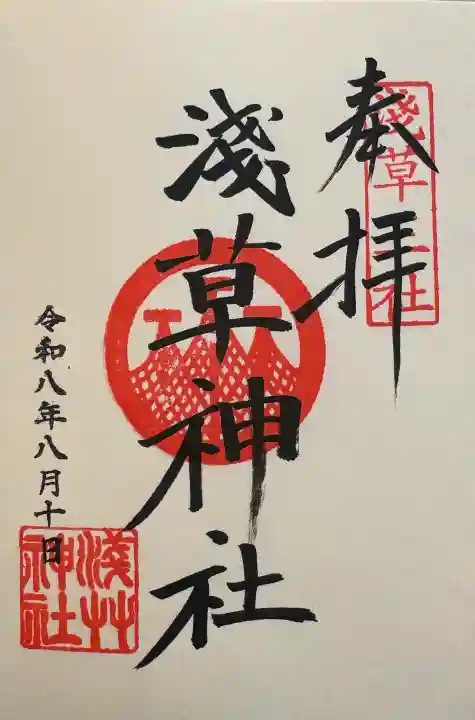 奉拝
淺草三社
淺草神社
令和八年八月十日
淺草神社